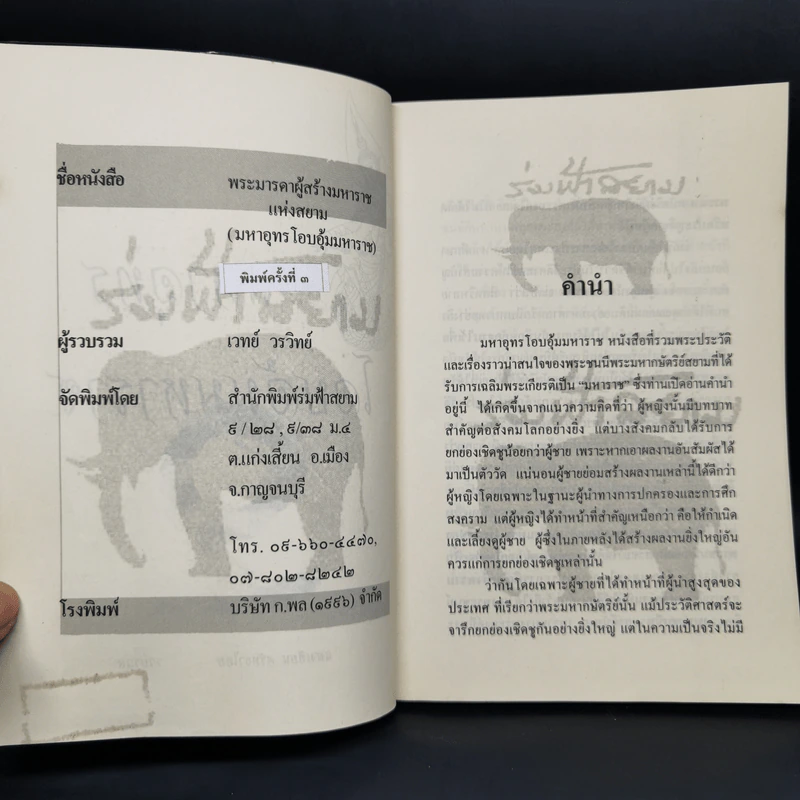 ชื่อหนังสือ พระมารดาผู้สร้างมหาราช
แห่งสยาม
(มหาอุทรโอบอุ้มมหาราช)
พิมพ์ครั้งที่ ๓
ผู้รวบรวม เวทย์ วรวิทย์
จัดพิมพ์โดย สำนักพิมพ์ร่มฟ้าสยาม
๙/๒๘ , ๙/๓๘ ม.๔
ต.แก่งเสี้ยน อ.เมือง
จ.กาญจนบุรี
โทร. ๐๙-๖๖๐-๔๔๗๐,
๐๗-๘๐๒-๘๒๔๒
โรงพิมพ์ บริษัท ก.พล (๑๙๙๖) จำกัด
ร่มฟ้าสยาม
คำนำ
มหาอุทรโอบอุ้มมหาราช หนังสือที่รวมพระประวัติ
และเรื่องราวน่าสนใจของพระชนนีพระมหากษัตริย์สยามที่ได้
รับการเฉลิมพระเกียรติเป็น “มหาราช” ซึ่งท่านเปิดอ่านคำนำ
อยู่นี้ ได้เกิดขึ้นจากแนวความคิดที่ว่า ผู้หญิงนั้นมีบทบาท
สำคัญต่อสังคมโลกอย่างยิ่ง แต่บางสังคมกลับได้รับการ
ยกย่องเชิดชูน้อยกว่าผู้ชาย เพราะหากเอาผลงานอันสัมผัสได้
มาเป็นตัววัด แน่นอนผู้ชายย่อมสร้างผลงานเหล่านี้ได้ดีกว่า
ผู้หญิงโดยเฉพาะในฐานะผู้นำทางการปกครองและการศึก
สงคราม แต่ผู้หญิงได้ทำหน้าที่สำคัญเหนือกว่า คือให้กำเนิด
และเลี้ยงดูผู้ชาย ผู้ซึ่งในภายหลังได้สร้างผลงานยิ่งใหญ่อัน
ควรแก่การยกย่องเชิดชูเหล่านั้น
ว่ากันโดยเฉพาะผู้ชายที่ได้ทำหน้าที่ผู้นำสูงสุดของ
ประเทศ ที่เรียกว่าพระมหากษัตริย์นั้น แม้ประวัติศาสตร์จะ
จารึกยกย่องเชิดชูกันอย่างยิ่งใหญ่ แต่ในความเป็นจริงไม่มี